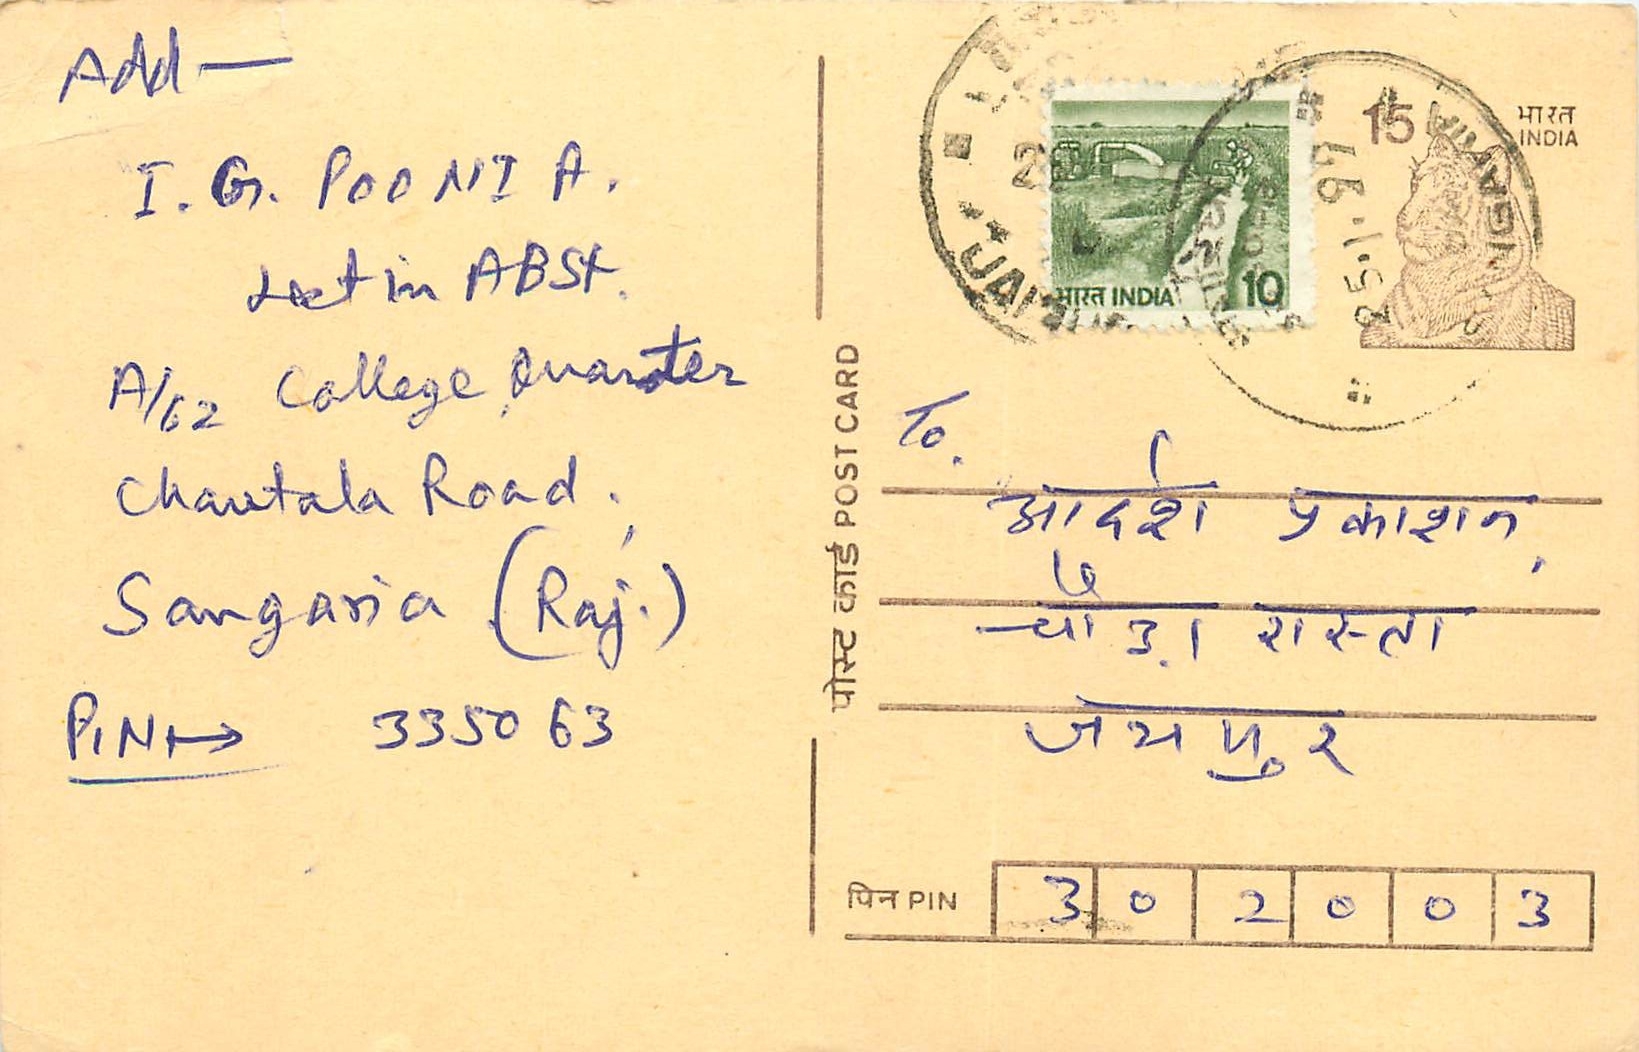 Add —
I. G. POONIA.
Lect in ABSt.
A/62 College Quarter
Chautala Road.
Sangaria (Raj.)
PIN → 335063
पोस्ट कार्ड POST CARD
भारत INDIA 10
15
भारत
INDIA
25.1.97
JAIPUR
SANGARIA
To.
आदर्श प्रकाशन,
चौड़ा रास्ता
जयपुर
पिन PIN 302003